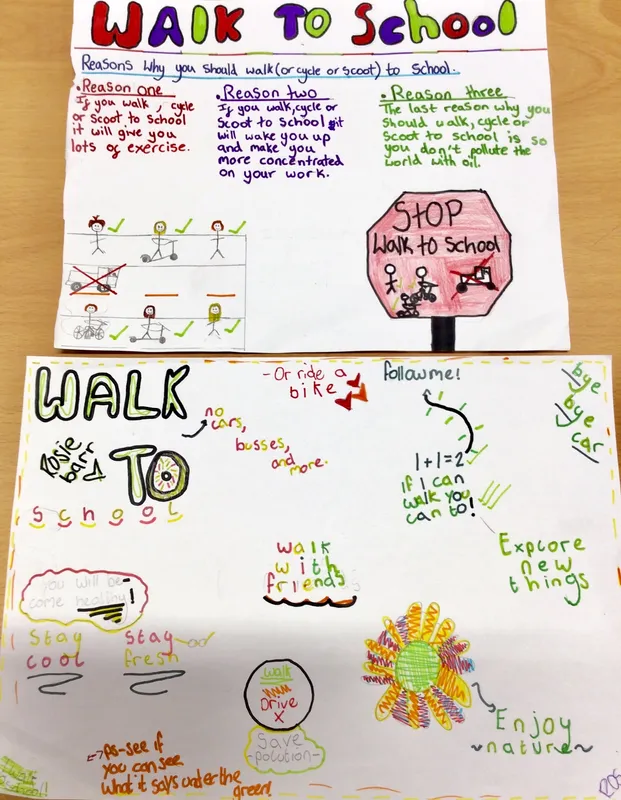 WALK TO School
Reasons why you should walk (or cycle or scoot) to school.
• Reason one
If you walk, cycle
or scoot to school
it will give you
lots of exercise.
Reason two
If you walk, cycle or
scoot to school it
will wake you up
and make you
more concentrated
on your work.
• Reason three
The last reason why you
should walk, cycle or
scoot to school is so
you don't pollute the
world with oil.
STOP
Walk to School
WALK
TO
School
Rosie
barr
no
cars,
busses,
and
more.
-Or ride a
bike
follow me!
bye
bye
car
1+1=2
if I can
walk you
can to!
Explore
new
things
walk
with
friends
you will be-
come healthy!
Stay
cool
Stay
fresh
walk
Drive
x
Save
-polution-
Enjoy
~nature~
Ps-see if
you can see
what it says under the
green!